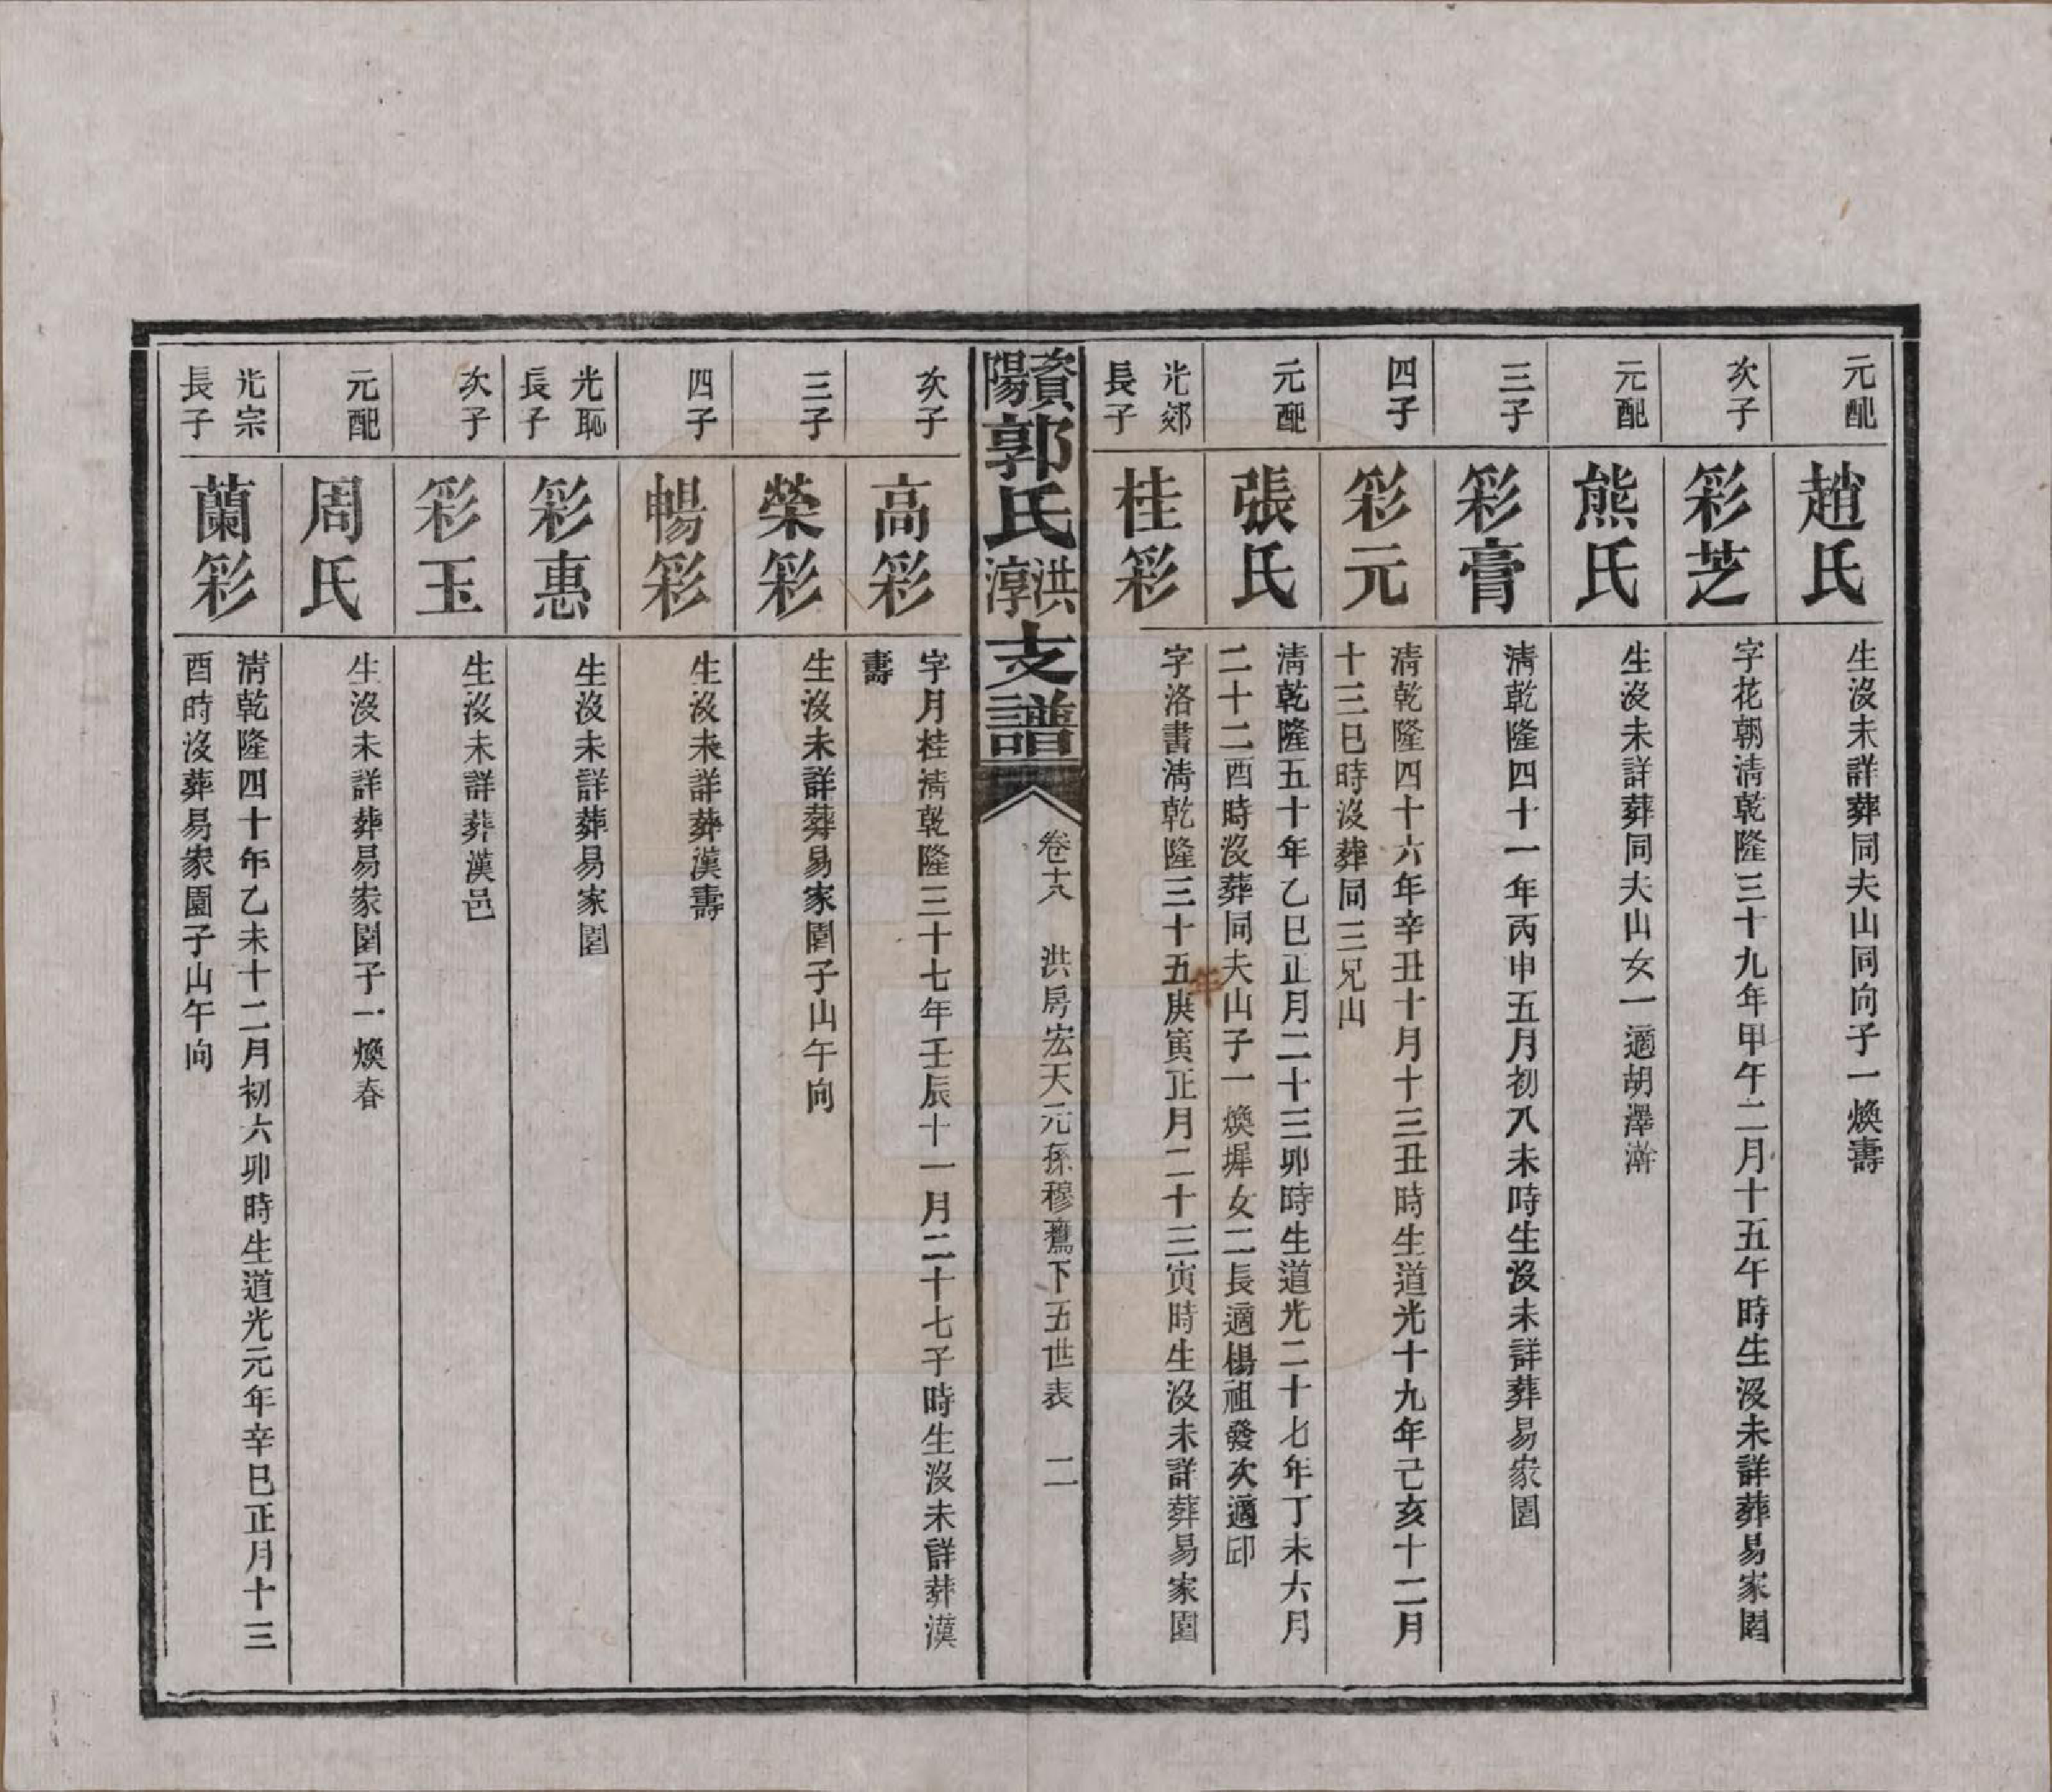 元配
趙氏
生沒未詳葬同夫山同向子一煥壽
次子
彩芝
字花朝清乾隆三十九年甲午二月十五午時生沒未詳葬易家園
元配
熊氏
生沒未詳葬同夫山女一適胡澤澣
三子
彩膏
清乾隆四十一年丙申五月初八未時生沒未詳葬易家園
四子
彩元
清乾隆四十六年辛丑十月十三丑時生道光十九年己亥十二月
十三巳時沒葬同三兄山
元配
張氏
清乾隆五十年乙巳正月二十三卯時生道光二十七年丁未六月
二十二酉時沒葬同夫山子一煥墀女二長適楊祖發次適邱
光郊
長子
桂彩
字洛書清乾隆三十五年庚寅正月二十三寅時生沒未詳葬易家園
資陽郭氏洪淳支譜
卷十八 洪房宏天元孫穆鷹下五世表 二
次子
高彩
字月桂清乾隆三十七年壬辰十一月二十七子時生沒未詳葬漢
壽
三子
榮彩
生沒未詳葬易家園子山午向
四子
暢彩
生沒未詳葬漢壽
光恥
長子
彩惠
生沒未詳葬易家園
次子
彩玉
生沒未詳葬漢邑
元配
周氏
生沒未詳葬易家園子一煥春
光宗
長子
蘭彩
清乾隆四十年乙未十二月初六卯時生道光元年辛巳正月十三
酉時沒葬易家園子山午向